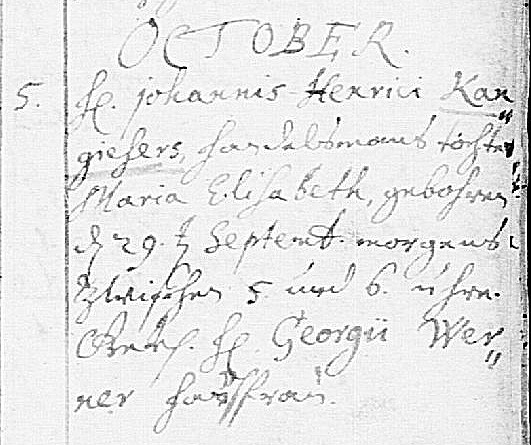 OCTOBER.
5. H. Johannis Henrici Kan„
giesers, Handelsmans töchter
Maria Elisabeth, gebohren
d. 29. t. Septemb. morgens
Zwischen 5. und 6. uhren.
H. Georgii Wer„
ner haußfrau.